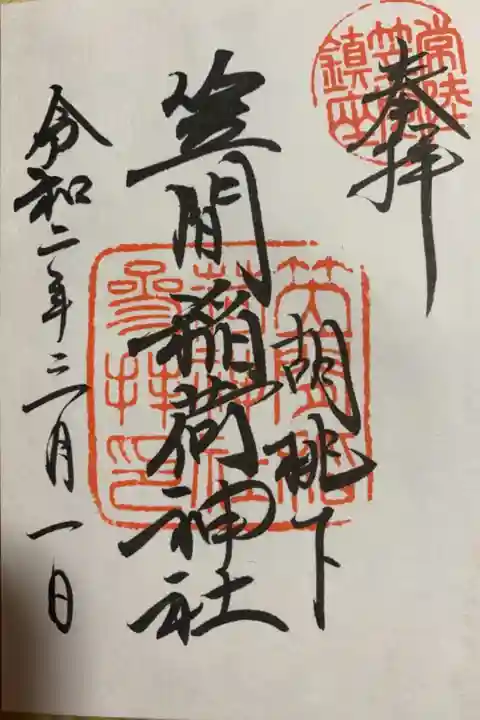 奉拝
常陸
笠間
鎮座
胡桃下
笠間稲荷神社
笠間稲
荷神社
参拝印
令和二年三月一日